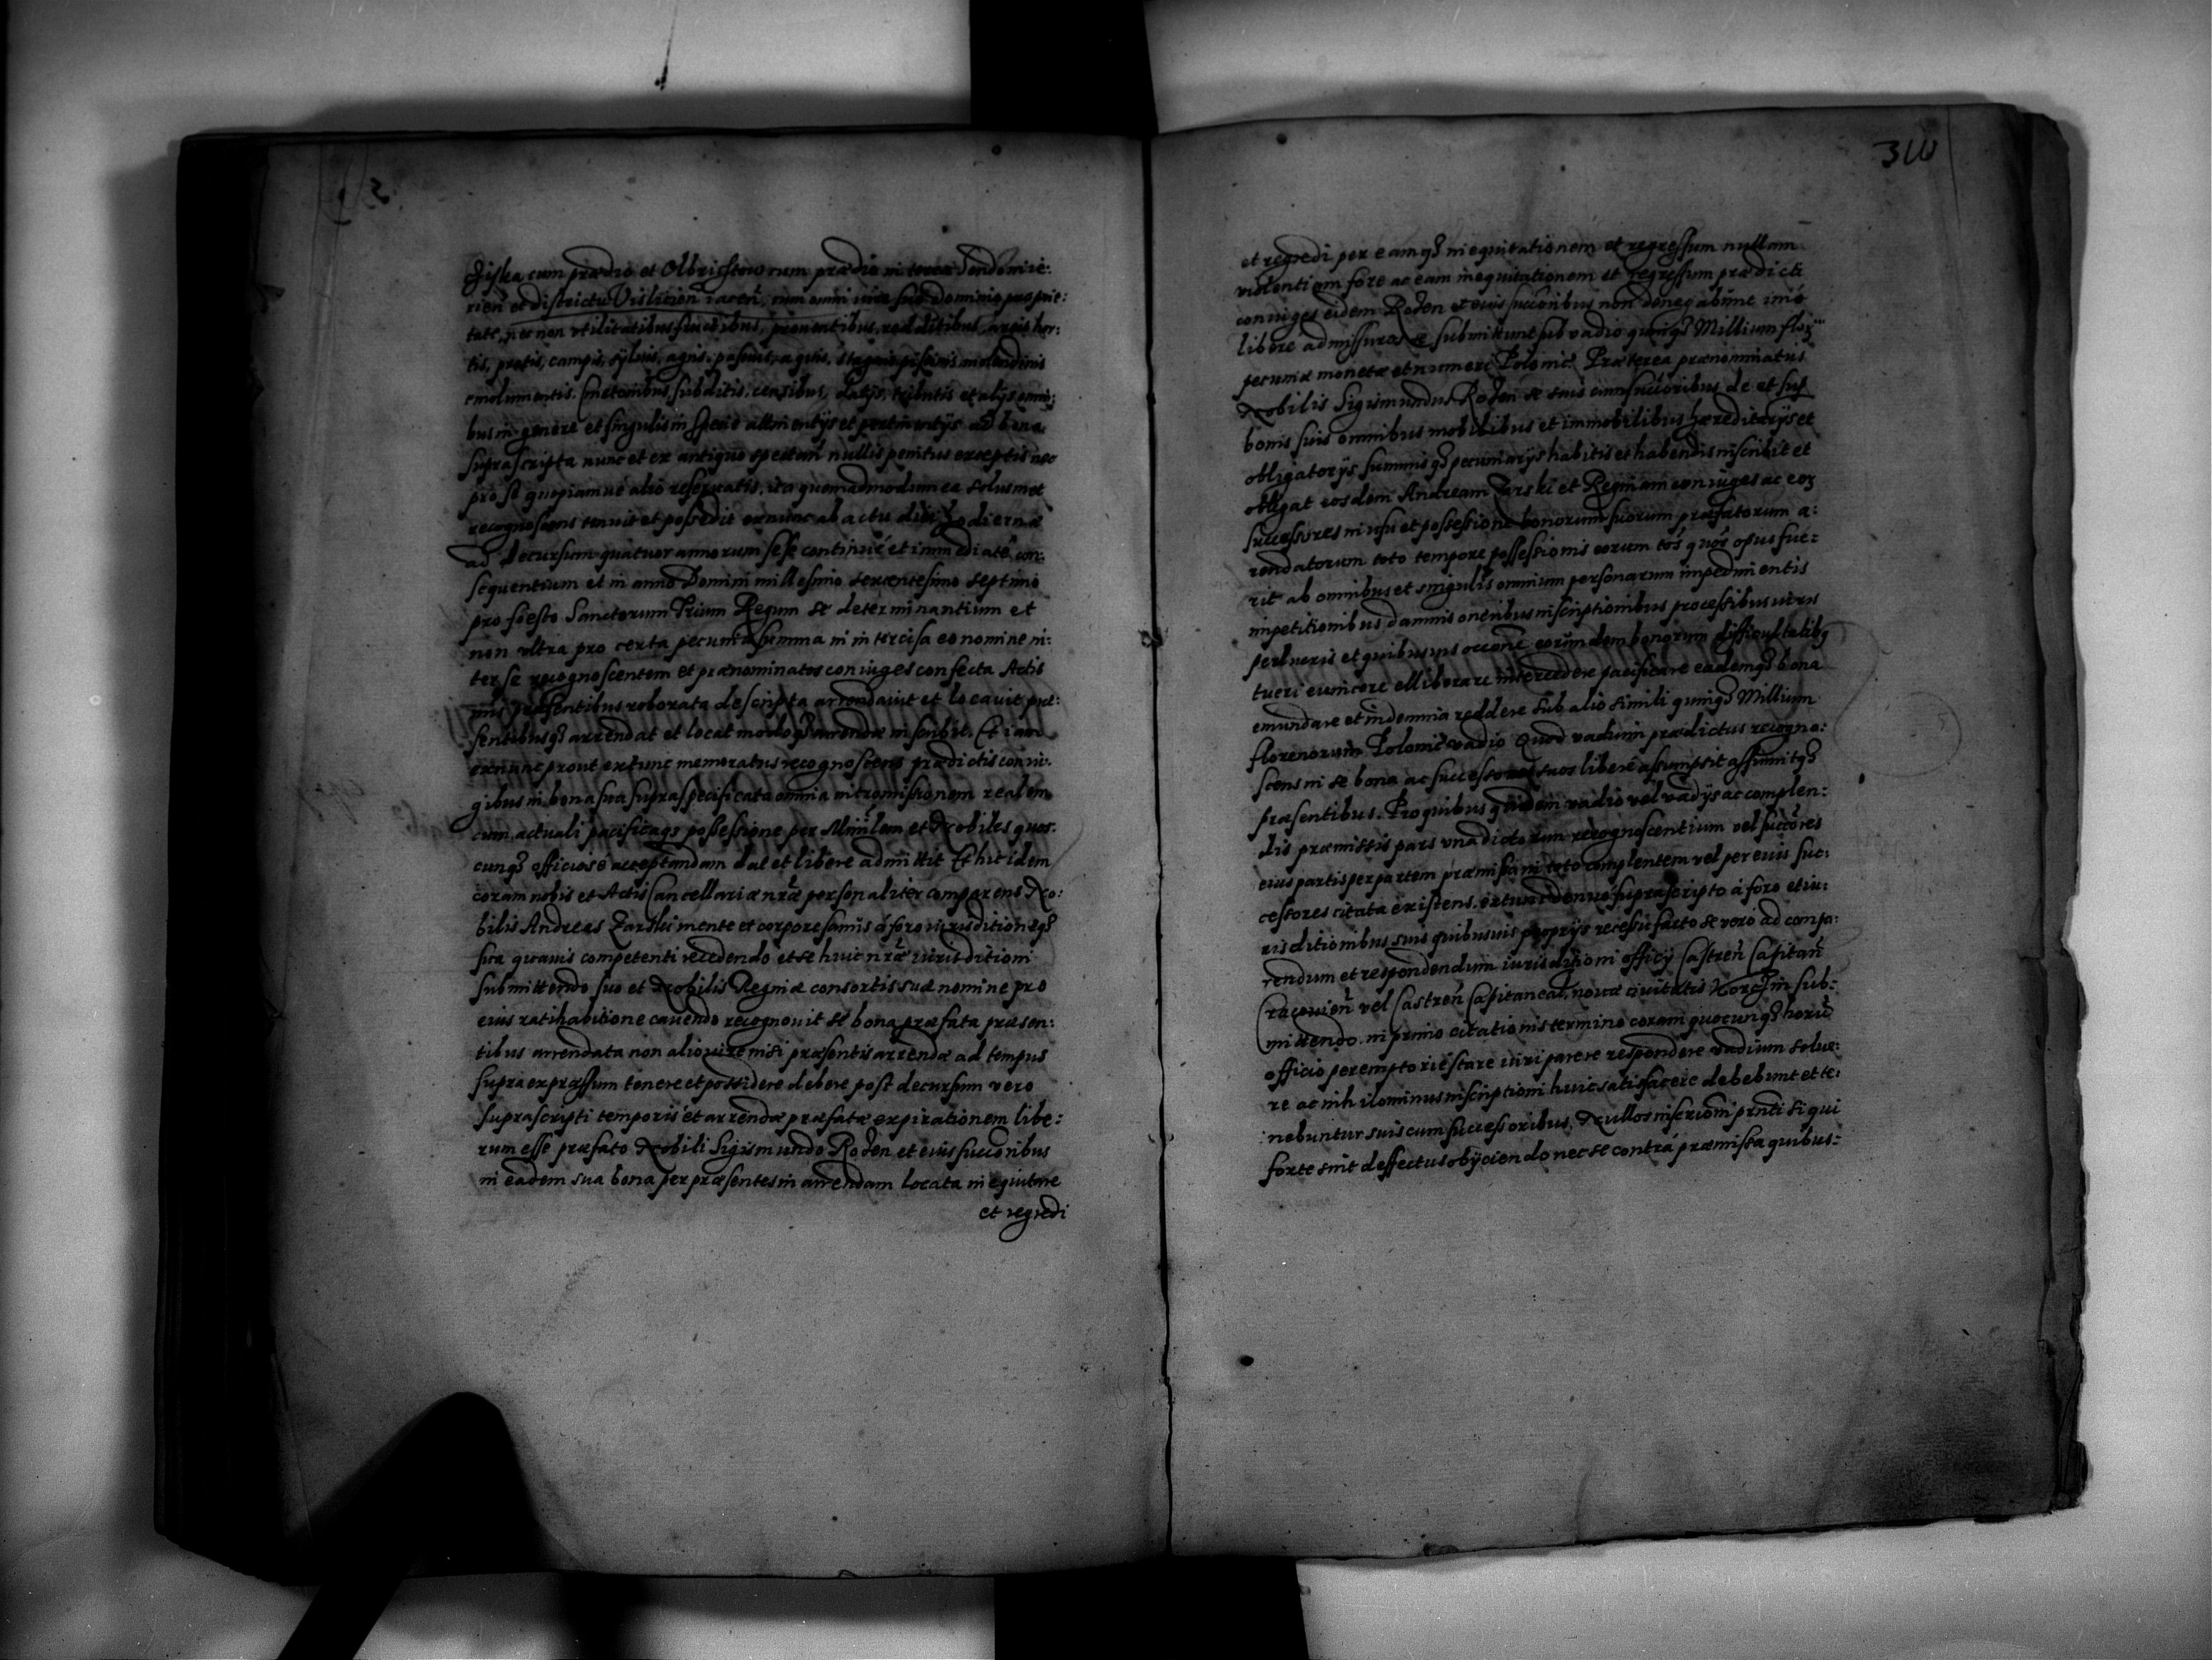 cum prædio et Olbrichtow cum prædio in terra Sendomie:
rien̄ et districtu Vislicien̄ iacen̄, cum omni iure suo Dominio propri:
tate, nec non vtilitatibus fructibus, prouentibus, redditibus, areis hor:
tis, pratis, campis, syluis, agris, pascuis, aquis, stagnis piscinis molendinis
emolumentis. Cmetonibus, subditis, censibus, datijs, tributis et alijs omni:
bus in genere et singulis in specie attinentijs et pertinentijs ad bona
suprascripta nunc et ex antiquo spectan̄ nullis penitus exceptis nec
pro se quopiamue alio reseruatis, ita quemadmodum ea solusmet
recognoscens tenuit et possedit ex nunc ab actu diei hodiernæ
ad decursum quatuor annorum sese continué et immediaté con:
sequentium et in anno Domini millesimo sexcentesimo septimo
pro foesto Sanctorum Trium Regum se determinantium et
non vltra pro certa pecuniæ summa in intercisa eo nomine in:
ter se recognoscentem et prænominatos coniuges confecta Actis
præsentibus roborata descripta arrendauit et locauit præ:
sentibusq̃ arrendat et locat modoq̃ arrendæ inscribit. Et iam
exnunc prout extunc memoratus recognoscens prædictis coniu:
gibus in bona sua supraspecificata omnia intromissionem realem
cum actuali pacificaq̃ possessione per Minĩlem et Nobiles quos:
cunq̃ officiose acceptandam dat et libere admittit Et hic idem
coram nobis et Actis Cancellariæ nr̃æ personaliter comparens No:
bilis Andreas Zarski mente et corpore sanus á foro iurisditioneq̃
sua quauis competenti recedendo et se huic nr̃æ iurisditioni
submittendo suo et Nobilis Reginæ consortis suæ nomine pro
eius ratihabitione cauendo recognouit se bona præfata præsen:
tibus arrendata non alio iure nisi præsentis arrendæ ad tempus
supra expræssum tenere et possidere debere post decursum vero
suprascripti temporis et arrendæ præfatæ expirationem libe:
rum esse præfato Nobili Sigismundo Rożen et eius succ̃oribus
in eadem sua bona per præsentes in arrendam locata inequitare
et regredi
314
et regredi per eamq̃ inequitationem et regressum nullam
violentiam fore ac eam inequitationem et regressum prædicti
coniuges eidem Rożen et eius succ̃oribus non denegabunt imó
liberé admissuros se submittunt sub vadio quinq̃ Millium
pecuniæ monetæ et numeri Polonic̄. Præterea prænominatus
Nobilis Sigismundus Rożen se suis cum succ̃oribus de et sup̱
bonis suis omnibus mobilibus et immobilibus hæreditarijs et
obligatorijs summisq̃ pecuniarijs habitis et habendis inscribit et
obligat eosdem Andream Zarski et Reginam coniuges ac eoꝝ
successores in usu et possessione bonorum suorum præfatorum a:
rendatorum toto tempore possessionis eorum tós quós opus fue:
rit ab omnibus et singulis omnium personarum impedimentis
impetitionibus damnis oneribus inscriptionibus processibus iuris
et quibusuis occ̃one eorundem bonorum difficultatibꝰ
tueri euincere elliberare intercedere pacificare eademq̃ bona
emundare et indemnia reddere sub alio simili quinq̃ Millium
florenorum Polonic̄ vadio Quod vadium prædictus recogno:
scens in se bona ac successores suos liberé assumpsit assumitq̃
præsentibus. Pro quibus quidem vadio vel vadijs ac complen:
dis præmissis pars vna dictorum recognoscentium vel succ̃ores
eius partis per partem præmissa in toto complentem vel per eius suc:
cessores citata existens, extunc denuó suprascripto á foro et iu:
risditionibus suis quibusuis proprijs recessu facto se veró ad compa:
rendum et respondendum iurisditioni officij Castren̄ Capitan̄
Cracouien̄ vel Castren̄ Capitaneal̄ nouæ ciuitatis Korchin sub:
mittendo, in primo citationis termino coram quocunq̃ horũ
officio peremptorié stare iuri parere respondere vadium solue:
re ac nihilominus inscriptioni huic satisfacere debebunt et te:
nebuntur suis cum successoribus. Nullos inscr̃ioni prñti si qui
forte sint deffectus obijciendo nec se contrá præmissa quibus: